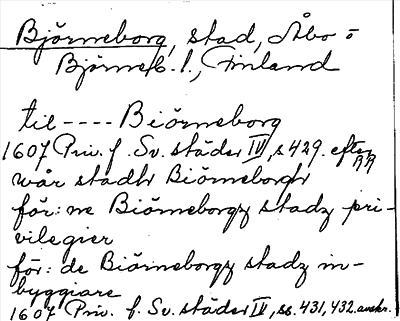 Björneborg, stad, Åbo o
Björneb. l., Finland
til ---- Biörneborg
1607 Priv. f. Sv. städer IV, s 429. efter
wår stadh Biörneborgh
för:ne Biörneborgz stadz pri-
vilegier
för: de Biörneborgz stadz in-
byggiare
1607 Priv. f. Sv. städer IV, ss. 431, 432. anskr.